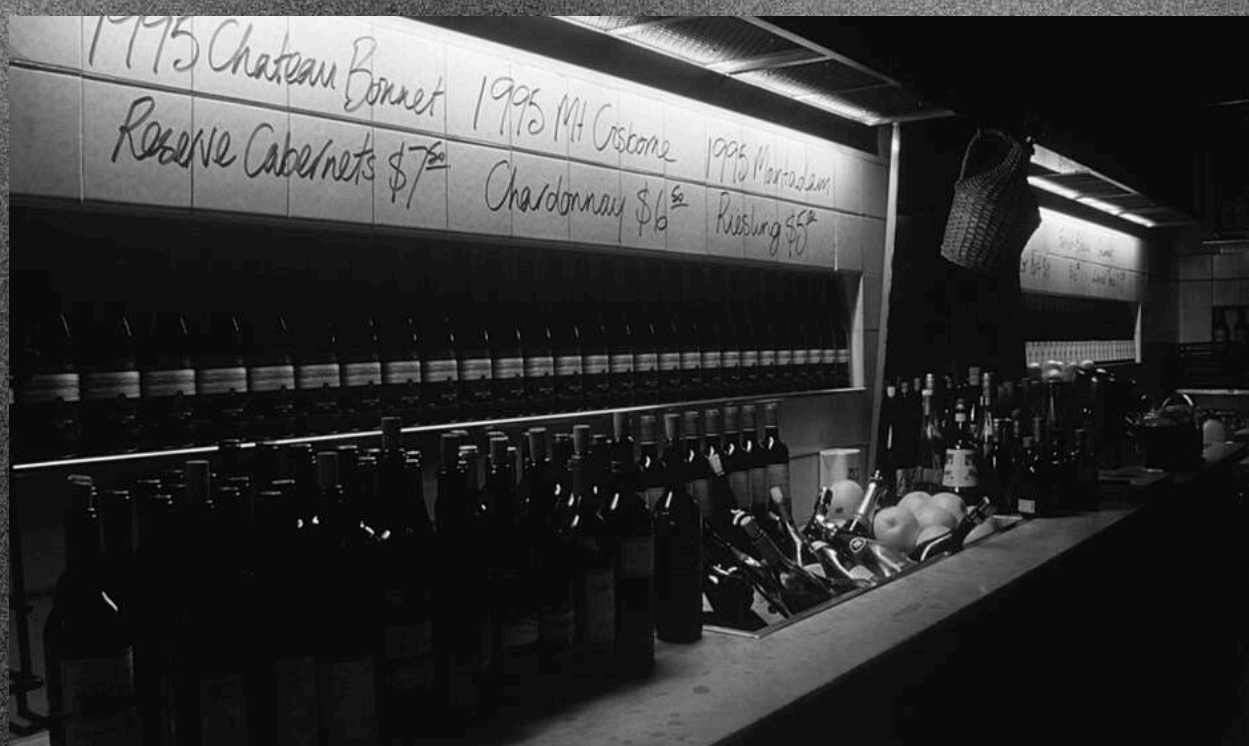 1995 Chateau Bonnet
Reserve Cabernets $7.50
1995 Mt Gisborne
Chardonnay $6.50
1995
Riesling $5